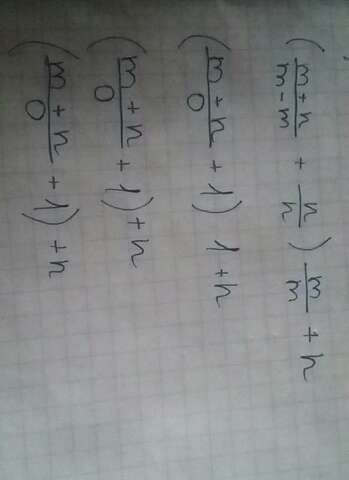 (m + n / m - m + n / n) m / m + n
(m + n / 0 + 1) 1 + n
(m + n / 0 + 1) + n
(m + n / 0 + 1) + n